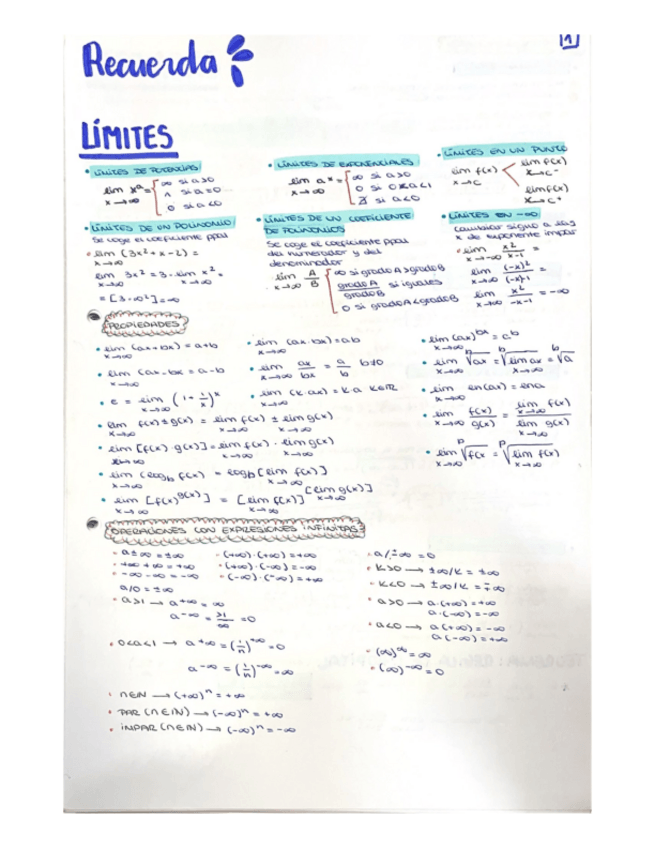 1
Recuerda
LÍMITES
• LÍMITES DE POTENCIAS
lim xᵃ = { ∞ si a>0
x→∞ 1 si a=0
0 si a<0
• LÍMITES DE EXPONENCIALES
lim aˣ = { ∞ si a>0
x→∞ 0 si 0<a<1
∄ si a<0
• LÍMITES EN UN PUNTO
lim f(x) < lim f(x) x→c⁻
x→c lim f(x) x→c⁺
• LÍMITES DE UN POLINOMIO
Se coge el coeficiente ppal
• lim (3x²+x-2) =
x→∞
lim 3x² = 3·lim x² =
x→∞ x→∞
= [3·∞²] = ∞
• LÍMITES DE UN COEFICIENTE
DE POLINOMIOS
Se coge el coeficiente ppal
del numerador y del
denominador
lim A/B { ∞ si grado A > grado B
x→∞ grado A/grado B si iguales
0 si grado A < grado B
• LÍMITES EN -∞
Cambiar signo a las
x de exponente impar
• lim x²/x-1 =
x→-∞
lim (-x)²/(-x)-1 =
x→∞
lim x²/-x-1 = -∞
x→∞
PROPIEDADES
• lim (ax+bx) = a+b
x→∞
• lim (ax-bx = a-b
x→∞
• e = lim (1+1/x)ˣ
x→∞
• lim f(x)±g(x) = lim f(x) ± lim g(x)
x→∞ x→∞ x→∞
• lim [f(x)·g(x)] = lim f(x) · lim g(x)
x→∞ x→∞ x→∞
• lim (log_b f(x) = log_b [lim f(x)]
x→∞ x→∞
• lim [f(x)^g(x)] = [lim f(x)]^[lim g(x)]
x→∞ x→∞ x→∞
• lim (ax·bx) = ab
x→∞
• lim ax/bx = a/b b≠0
x→∞
• lim (k·ax) = k·a k∈ℝ
x→∞
• lim (ax)^bx = c^b
x→∞
x→∞
• lim ln(ax) = lna
x→∞
• lim f(x)/g(x) = lim f(x)/lim g(x)
x→∞ x→∞
• lim ᵖ√f(x = ᵖ√lim f(x)
x→∞ x→∞
OPERACIONES CON EXPRESIONES INFINITAS
• a±∞ = ±∞
• +∞+∞ = +∞
• -∞-∞ = -∞
a/0 = ±∞
• a>1 → a^+∞ = ∞
a^-∞ = =0
• 0<a<1 → a^+∞ = (1/n)^+∞ = 0
a^-∞ = (1/n)^-∞ = ∞
• n∈ℕ → (+∞)ⁿ = +∞
• PAR (n∈ℕ) → (-∞)ⁿ = +∞
• IMPAR (n∈ℕ) → (-∞)ⁿ = -∞
• (+∞)·(+∞) = +∞
• (+∞)·(-∞) = -∞
• (-∞)·(-∞) = +∞
• a/±∞ = 0
• k>0 → ±∞/k = ±∞
• k<0 → ±∞/k = ∓∞
• a>0 → a·(+∞) = +∞
a·(-∞) = -∞
• a<0 → a(+∞) = -∞
a(-∞) = +∞
• (∞)^∞ = ∞
• (∞)^-∞ = 0